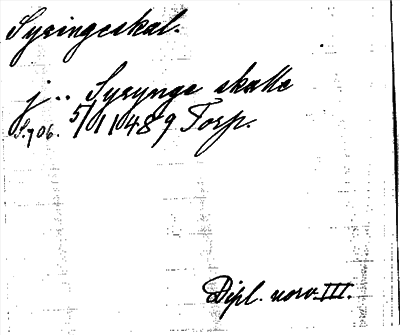 Syringeskal.
j... Syrynge skalle
S. 706. 5/11 1489 Torp.
Dipl. norv. III.